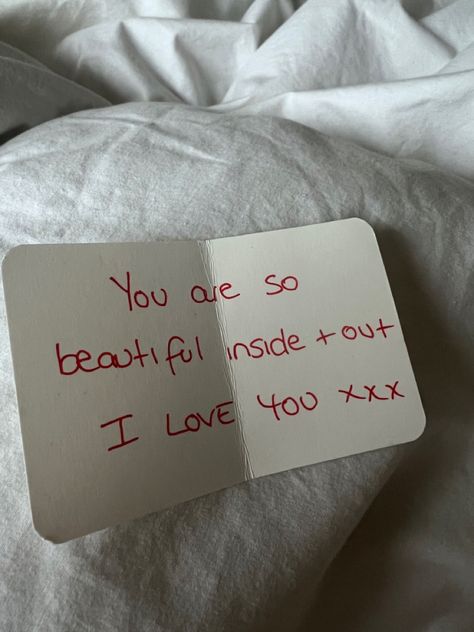 You are so
beautiful inside + out
I LOVE YOU xxx